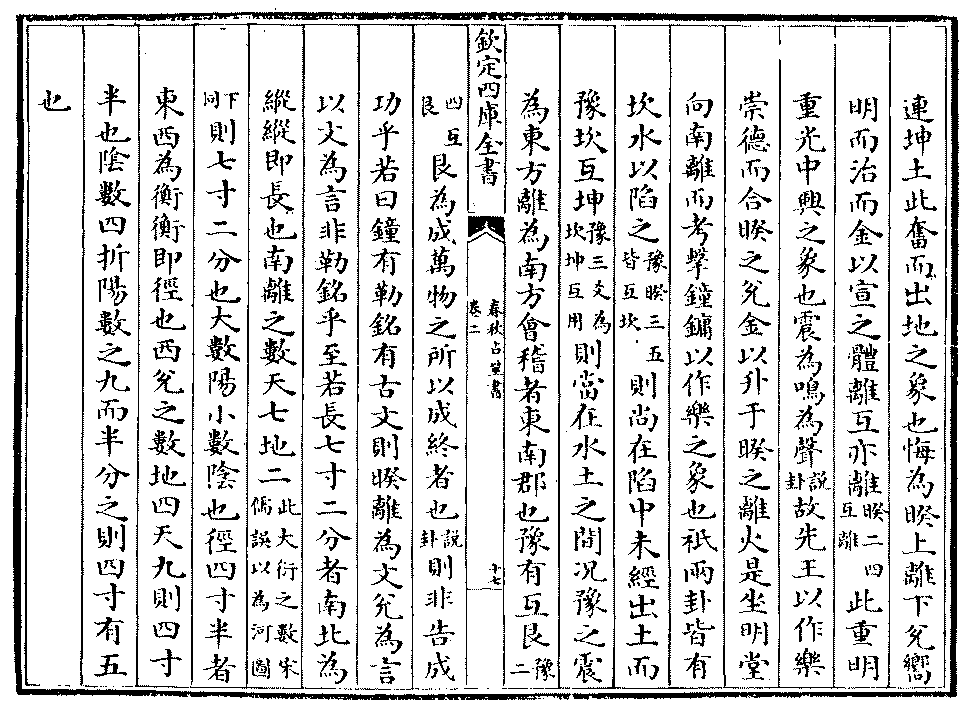 連坤土此奮而出地之象也悔為暌上離下兌嚮
明而治而金以宣之體離互亦離暌二四互離此重明
重光中興之象也震為鳴為聲說卦故先王以作樂
崇德而合暌之兌金以升于暌之離火是坐明堂
向南離而考擊鐘鏞以作樂之象也祇兩卦皆有
坎水以陷之豫暌三五皆互坎則尚在陷中未經出土而
豫坎互坤豫三爻為坎坤互用則當在水土之間况豫之震
為東方離為南方會稽者東南郡也豫有互艮豫二
欽定四庫全書
春秋占筮書
卷二
十七
四互艮艮為成萬物之所以成終者也說卦則非告成
功乎若曰鐘有勒銘有古文則暌離為文兌為言
以文為言非勒銘乎至若長七寸二分者南北為
縱縱即長也南離之數天七地二此大衍之數宋儒誤以為河圖
下同則七寸二分也大數陽小數陰也徑四寸半者
東西為衡衡即徑也西兌之數地四天九則四寸
半也陰數四折陽數之九而半分之則四寸有五
也